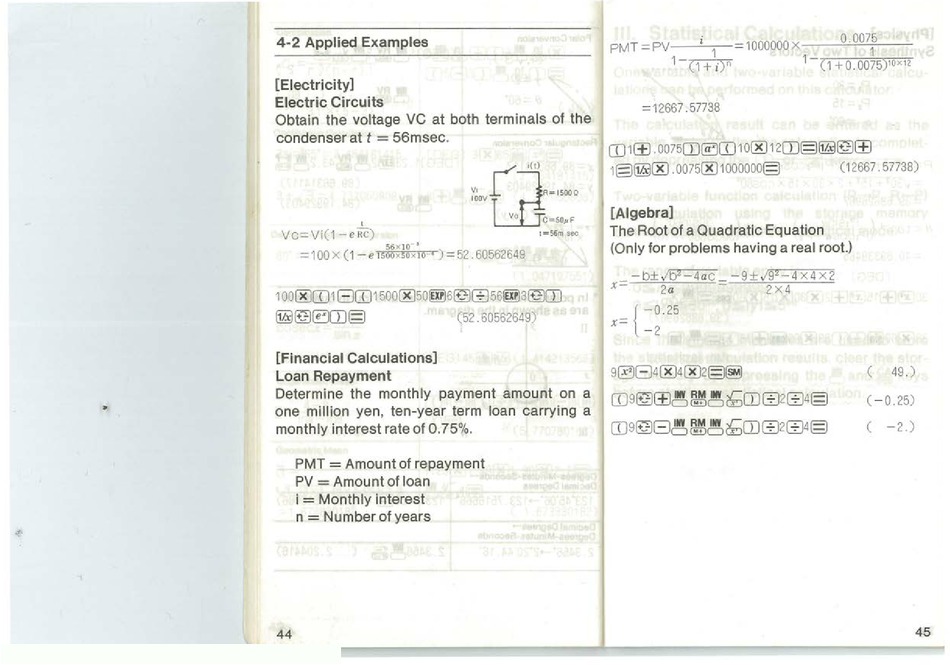 4-2 Applied Examples
[Electricity]
Electric Circuits
Obtain the voltage VC at both terminals of the
condenser at t = 56msec.
i(t)
Vi
100V
R=1500Ω
Vo
C=50μF
t=56m sec
Vc=Vi(1−e t/RC)
=100×(1−e 56×10⁻³/1500×50×10⁻⁶)=52.60562649
100×(1−(1500×50EXP6÷56EXP3)
1/x eˣ)= (52.60562649)
[Financial Calculations]
Loan Repayment
Determine the monthly payment amount on a
one million yen, ten-year term loan carrying a
monthly interest rate of 0.75%.
PMT = Amount of repayment
PV = Amount of loan
i = Monthly interest
n = Number of years
44
PMT=PV i/(1−1/(1+i)ⁿ)=1000000×0.0075/(1−1/(1+0.0075)¹⁰ˣ¹²)
=12667.57738
(1+.0075)aˣ(10×12)=1/x+
1=1/x×.0075×1000000= (12667.57738)
[Algebra]
The Root of a Quadratic Equation
(Only for problems having a real root.)
x=(−b±√b²−4ac)/2a=(−9±√9²−4×4×2)/2×4
x={−0.25
−2
9x²−4×4×2=SM ( 49.)
(9+INV RM M+ INV √ x²)÷2÷4= (−0.25)
(9−INV RM M+ INV √ x²)÷2÷4= ( −2.)
45